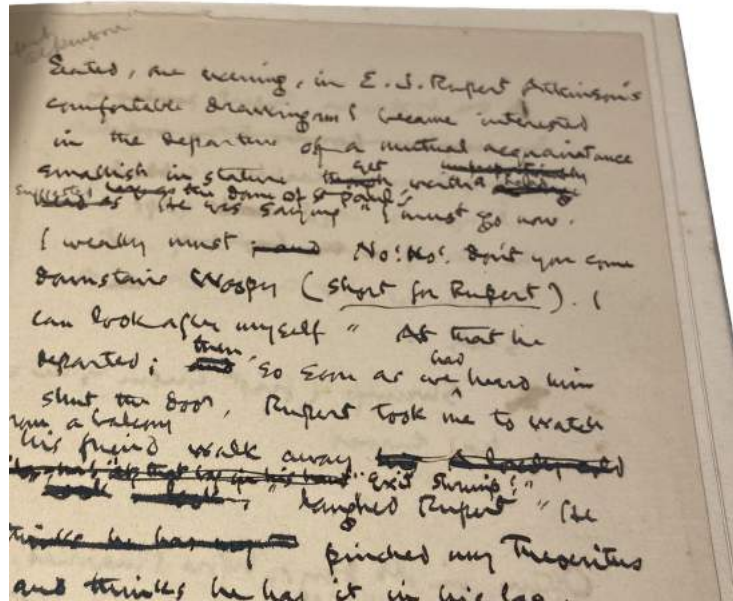 Seated, one evening, in E. J. Rupert Atkinson's
comfortable drawingroom I became interested
in the departure of a mutual acquaintance
smallish in stature yet with a
suggesting the dome of St Paul's
head as He was saying "I must go now.
I weally must; and No! No! don't you come
downstairs Woopy (short for Rupert). I
can look after myself" At that he
departed; then, so soon as we had heard him
shut the door, Rupert took me to watch
from a balcony
his friend walk away
"Exit shrimp!"
laughed Rupert "He
thinks he has my pinched my Theocritus
and thinks he has it in his bag